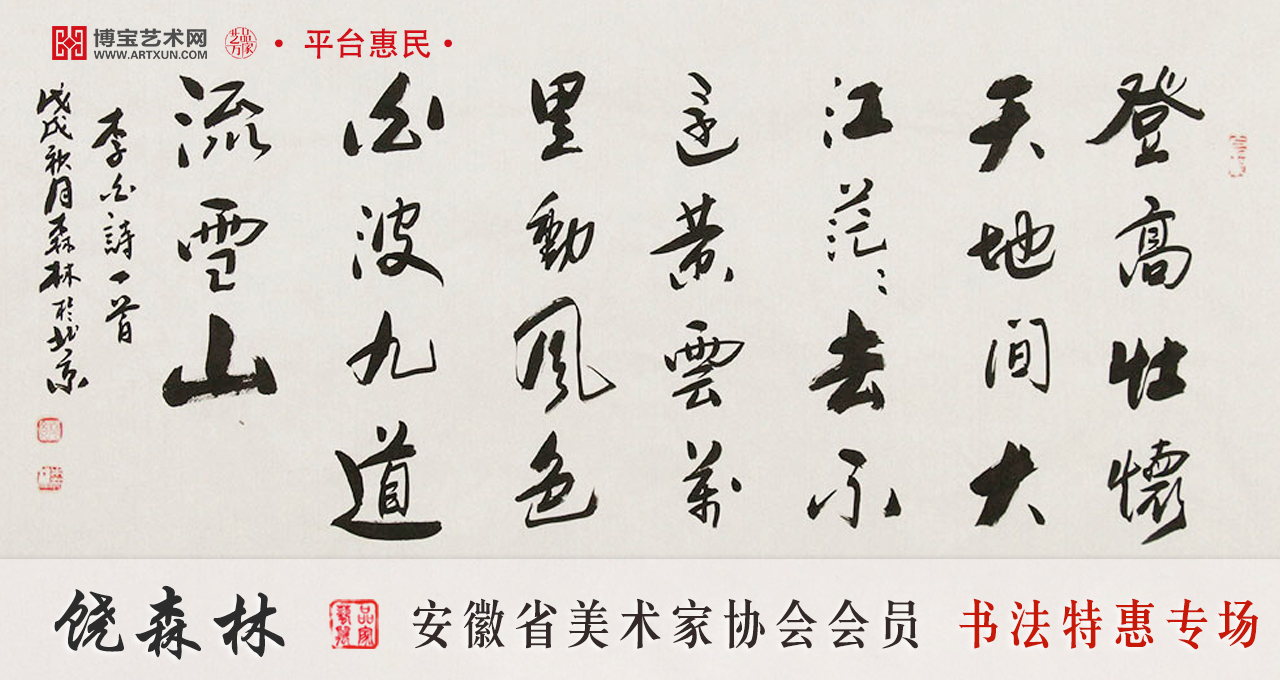 博宝艺术网
WWW.ARTXUN.COM
艺品万家
• 平台惠民 •
登高壮懷
天地間大
江茫茫去不
還黄雲萬
里動風色
白波九道
流雪山
李白詩一首
戊戌秋月森林於北京
饶森林
安徽省美术家协会会员
书法特惠专场